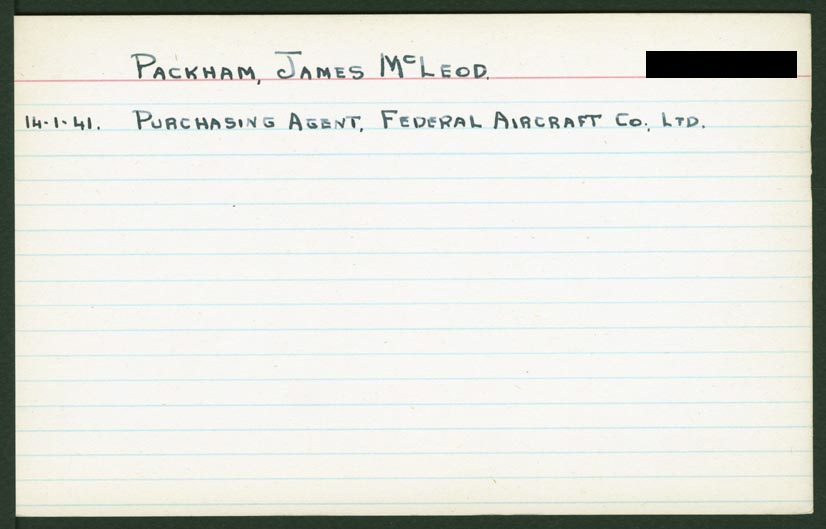 PACKHAM, JAMES McLEOD.
14-1-41. PURCHASING AGENT, FEDERAL AIRCRAFT Co., LTD.